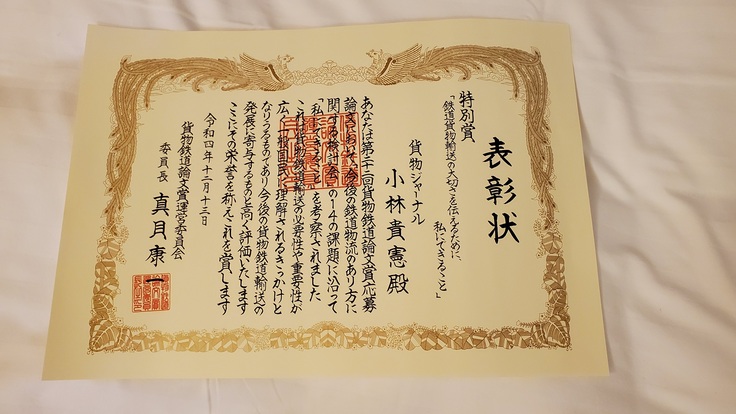 表彰状
特別賞
「鉄道貨物輸送の大切さを伝えるために、
私にできること」
貨物ジャーナル
小林貴憲殿
あなたは第二十二回貨物鉄道論文賞応募
論文において、今後の鉄道物流のあり方に
関する検討会の14の課題に沿って
「私にできること」を考察されました
これは貨物鉄道輸送の必要性や重要性が
広く一般国民に理解されるきっかけと
なりうるものであり今後の貨物鉄道輸送の
発展に寄与するものと高く評価いたします
ここにその栄誉を称えこれを賞します
令和四年十二月十三日
貨物鉄道論文賞運営委員会
委員長 真月康一